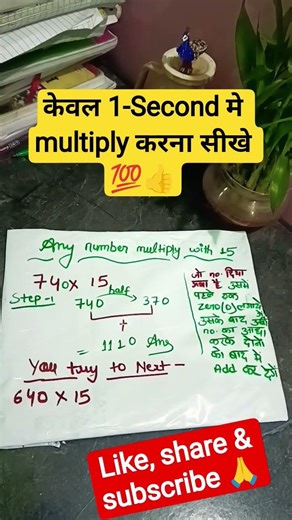 केवल 1-Second मे
multiply करना सीखे
💯👍
Any number multiply with 15
740 x 15
Step-1
half
740
370
+
= 1110 Ans
जो no. दिया
गया है उसमे
पहले एक
Zero(0) लगायेंगे
उसके बाद उसी
no. का आधा
करके दोनो
को बाद मे
Add कर देंगे
You try to Next -
640 X 15
Like, share &
subscribe 🙏